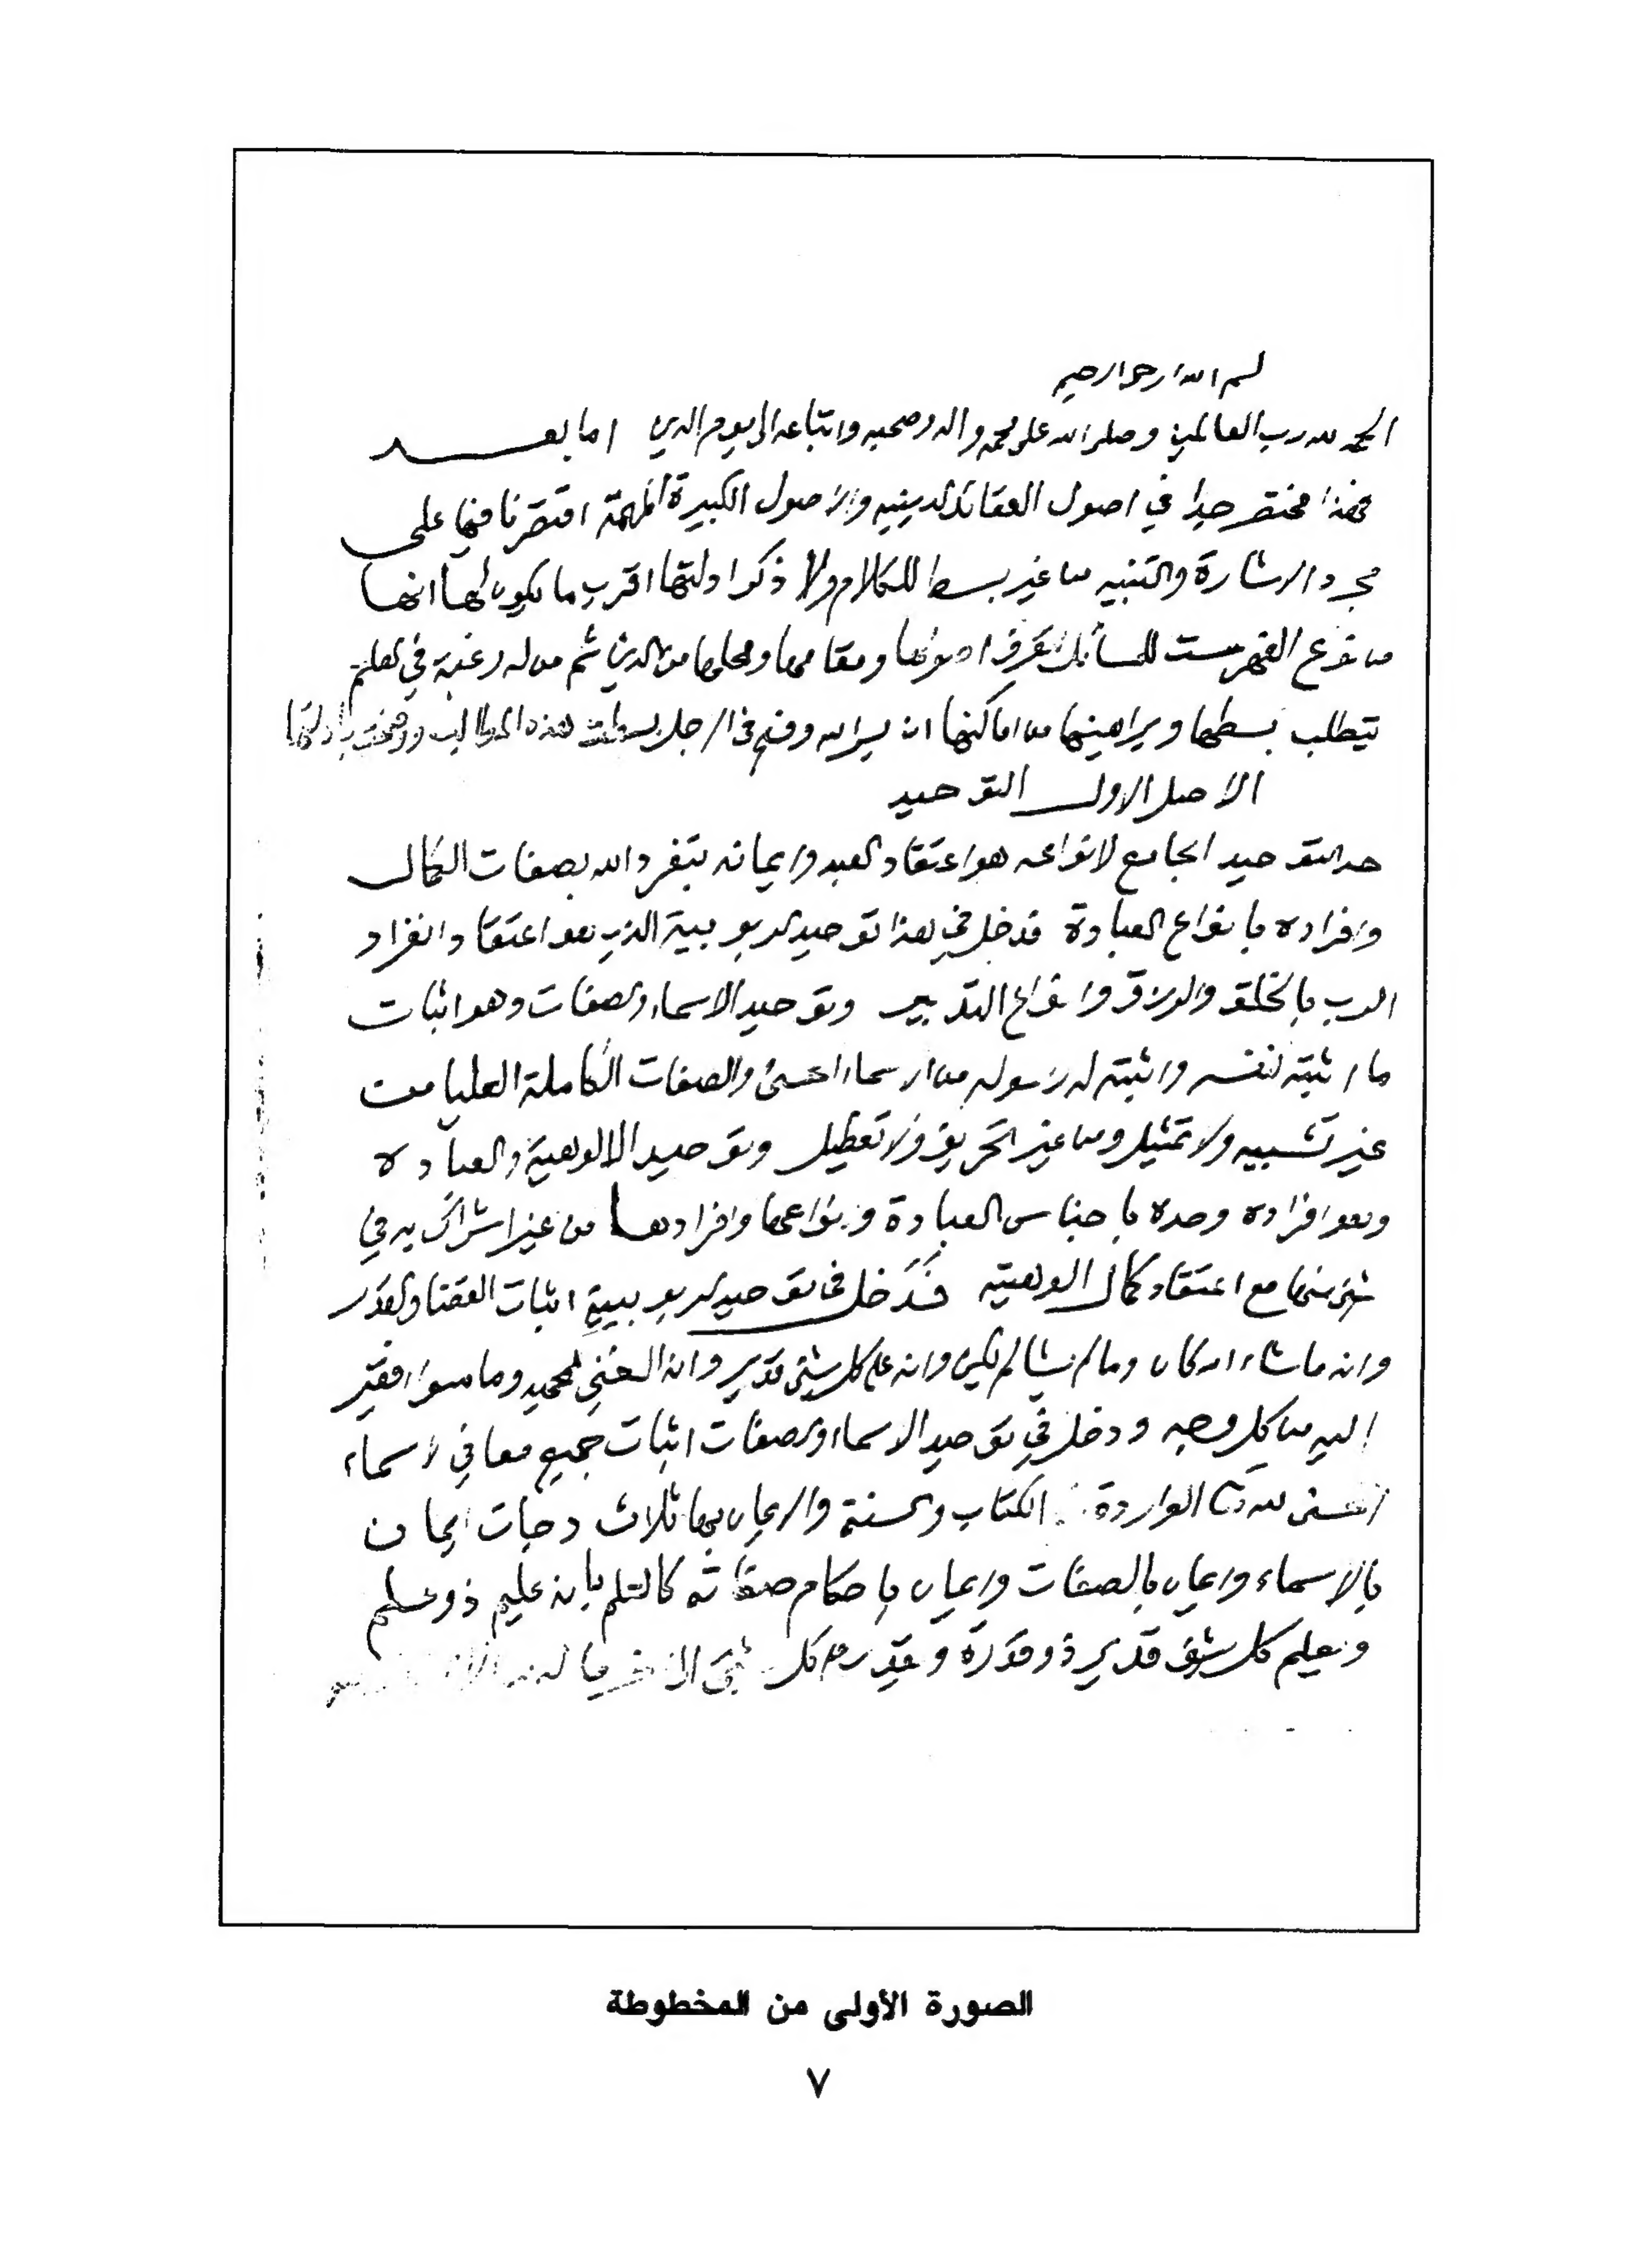 بسم الله الرحمن الرحيم
الحمد لله رب العالمين وصلى الله على محمد واله وصحبه واتباعه الى يوم الدين اما بعد
فهذا مختصر جدا في اصول العقائد الدينيه والاصول الكبيرة المهمة اقتصرنا فيها على
مجرد الاشارة والتنبيه من غير بسط للكلام ولا ذكر ادلتها اقرب ما يكون لها انها
من نوع الفهرست للمسائل لتعرف اصولها ومقامها ومحلها من الدين ثم من له رغبة في العلم
يتطلب بسطها وبراهينها من اماكنها وان يسر الله وفسح في الاجل بسطت هذه المطالب ووضحتها بادلتها
الاصل الاول التوحيد
حد التوحيد الجامع لانواعه هو اعتقاد العبد وايمانه بتفرد الله بصفات الكمال
وافراده بانواع العبادة فدخل في هذا توحيد الربوبية الذي هو اعتقاد انفراد
الرب بالخلق والرزق وانواع التدبير وتوحيد الاسماء والصفات وهو اثبات
ما اثبته لنفسه واثبته له رسوله من الاسماء الحسنى والصفات الكاملة العليا من
غير تشبيه ولا تمثيل ومن غير تحريف ولا تعطيل وتوحيد الالوهية والعبادة
وهو افراده وحده باجناس العبادة وانواعها وافرادها من غير اشراك به في
شيء منها مع اعتقاد كمال الوهيته فدخل في توحيد الربوبية اثبات القضا والقدر
وانه ما شاء الله كان وما لم يشا لم يكن وانه على كل شيء قدير وانه الغني الحميد وما سواه فقير
اليه من كل وجه ودخل في توحيد الاسماء والصفات اثبات جميع معاني الاسماء
الحسنى لله تعالى الواردة في الكتاب والسنة والايمان بها ثلاث درجات ايمان
بالاسماء وايمان بالصفات وايمان باحكام صفاته كالعلم بانه عليم ذو علم
ويعلم كل شيء قدير ذو قدرة ويقدر على كل شيء الى اخر ما له من الاسماء
الصورة الأولى من المخطوطة
٧